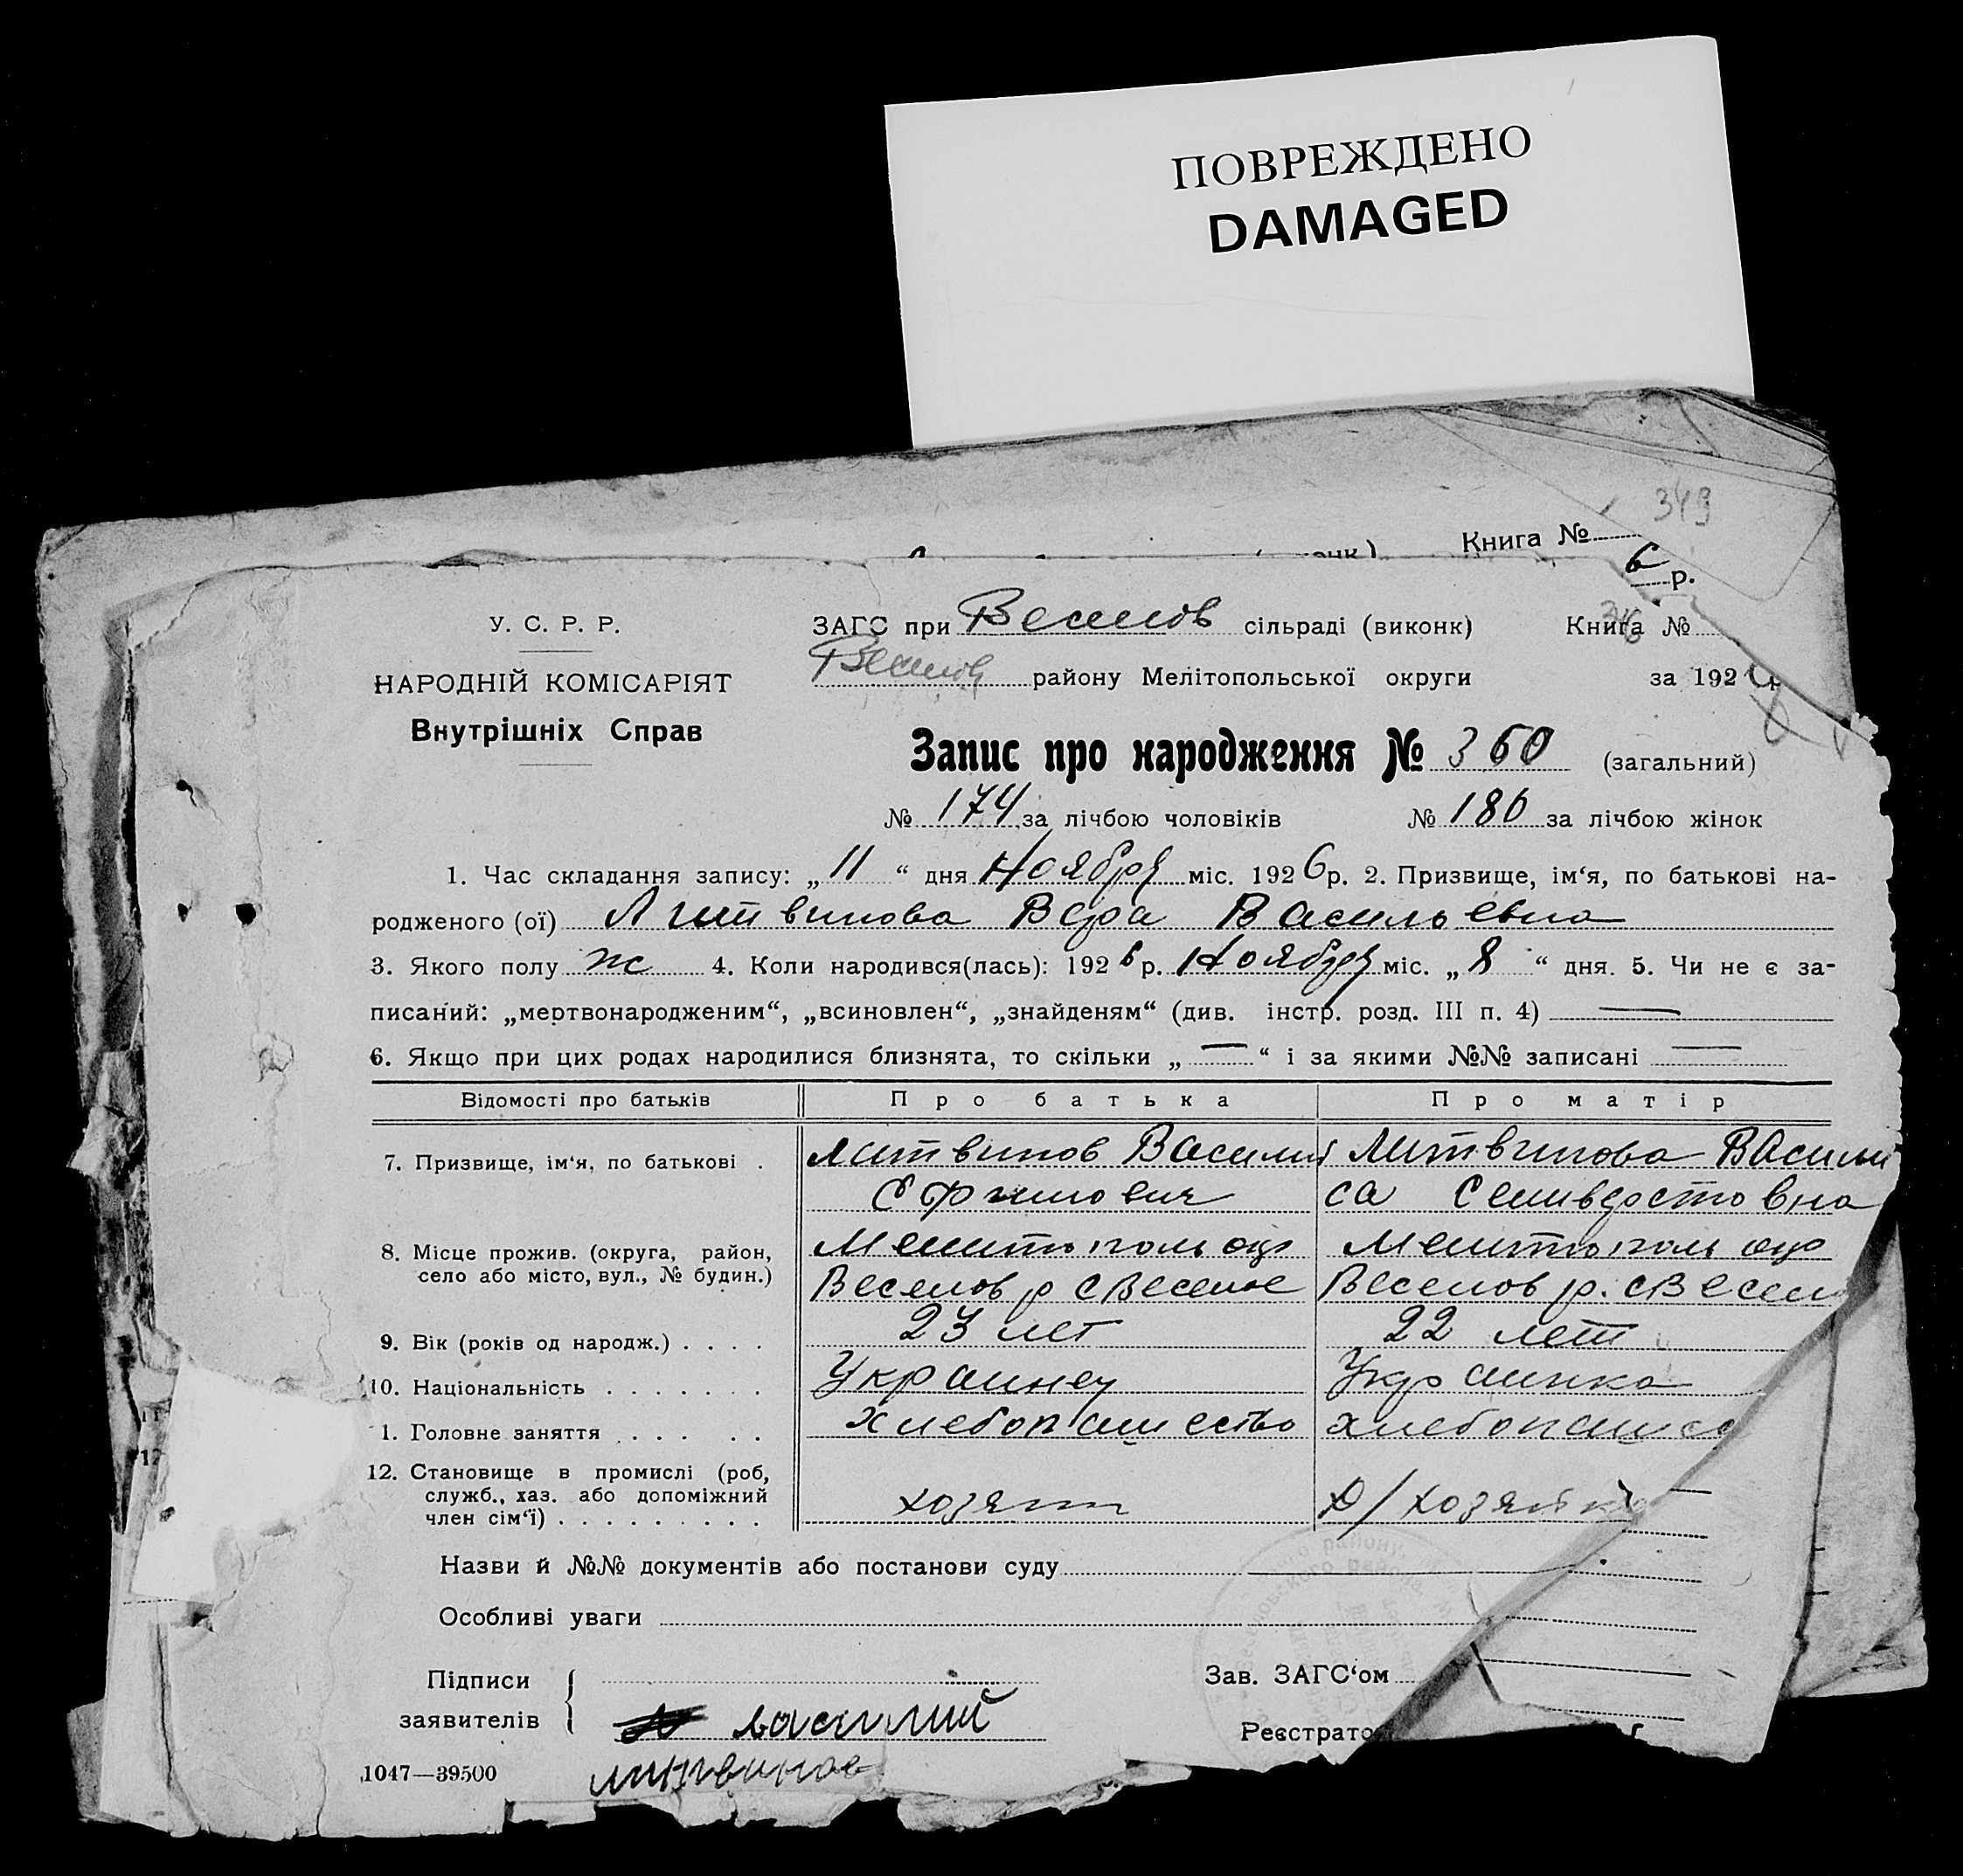 ПОВРЕЖДЕНО
DAMAGED
349
Книга №
6 р.
У. С. Р. Р.
НАРОДНІЙ КОМІСАРІЯТ
Внутрішніх Справ
ЗАГС при Веселов сільраді (виконк) Книга №
Веселов району Мелітопольської округи за 192
Запис про народження № 360 (загальний)
№ 174 за лічбою чоловіків № 186 за лічбою жінок
1. Час складання запису: „11“ дня Ноября міс. 1926 р. 2. Призвище, ім‘я, по батькові на-
родженого (ої) Литвинова Вера Васильевна
3. Якого полу ж 4. Коли народився(лась): 1926 р. Ноября міс. „8“ дня. 5. Чи не є за-
писаний: „мертвонародженим“, „всиновлен“, „знайденям“ (див. інстр. розд. III п. 4) —
6. Якщо при цих родах народилися близнята, то скільки „—“ і за якими №№ записані —
Відомості про батьків Про батька Про матір
7. Призвище, ім‘я, по батькові . Литвинов Василий Литвинова Васили
Ефимович са Селиверстовна
8. Місце прожив. (округа, район, Мелитополь окр Мелитополь окр
село або місто, вул., № будин.) Веселов р с Веселое Веселов р. с Весел
9. Вік (років од народж.) . . . . 23 лет 22 лет
10. Національність . . . . . . . Украинец Украинка
1. Головне заняття . . . . . . Хлебопашество хлебопашес
12. Становище в промислі (роб,
служб., хаз. або допоміжний хозяин д/хозяйка
член сім‘ї) . . . . . . . . .
Назви й №№ документів або постанови суду
Особливі уваги
Підписи Зав. ЗАГС‘ом
заявителів василий Реєстрато
1047—39500 литвинов